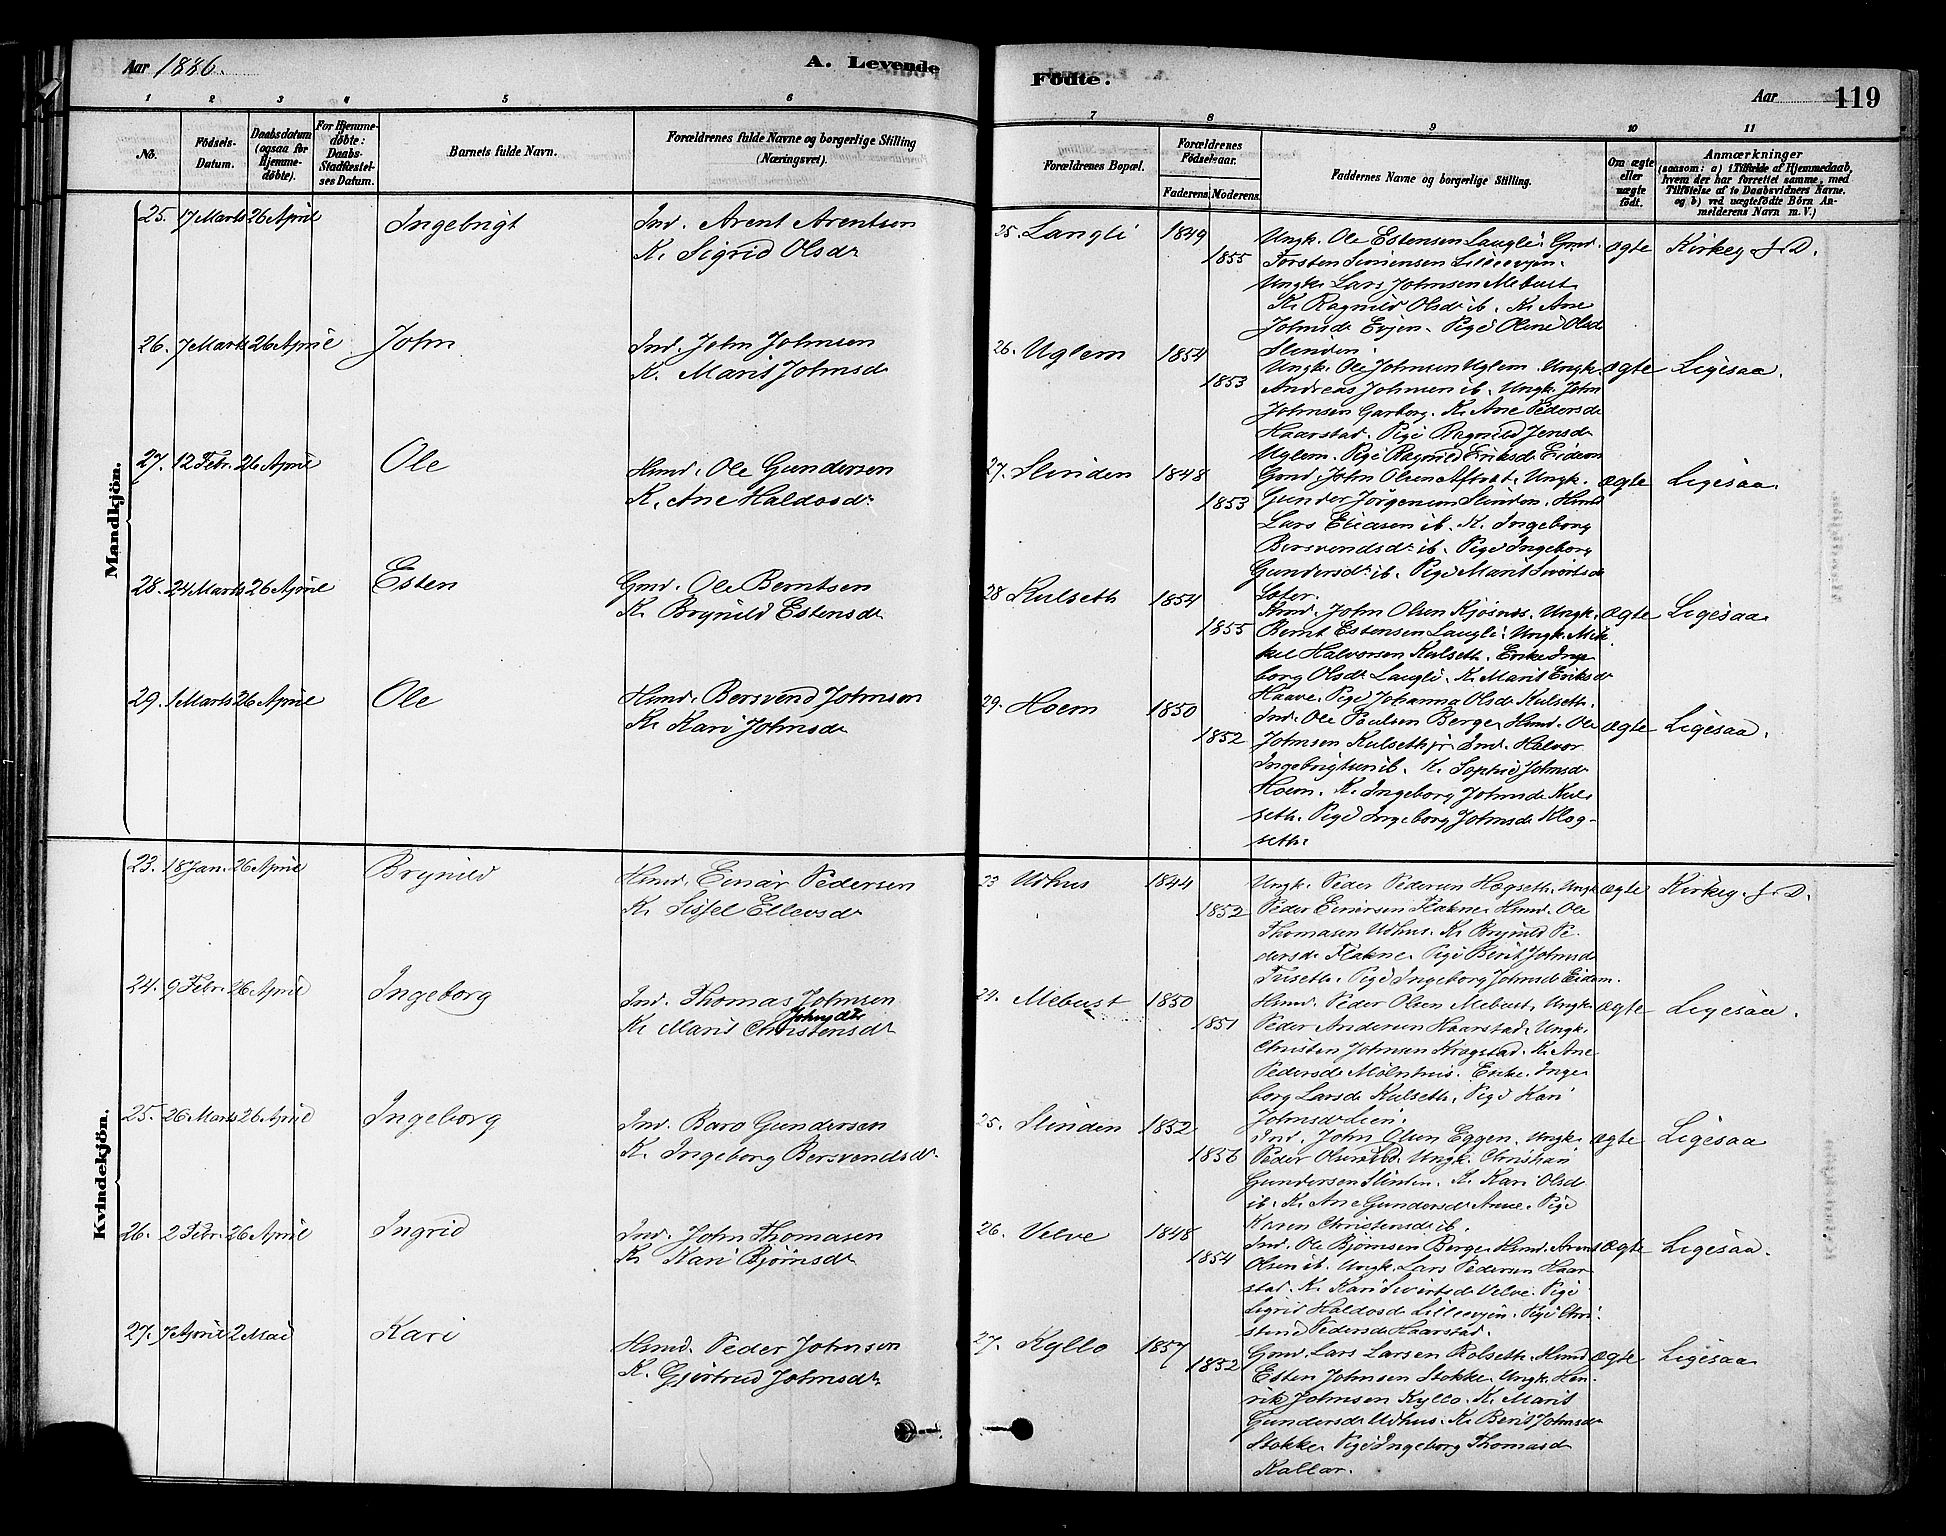 Aar 1886.
A. Levende
Födte.
Aar
119
1 2 3 4 5 6 7 8 9 10 11
No.
Födsels-
Datum.
Daabsdatum
(ogsaa for
Hjemme-
döbte).
For Hjemme-
döbte:
Daabs-
Stadfæstel-
ses Datum.
Barnets fulde Navn.
Forældrenes fulde Navne og borgerlige Stilling
(Næringsvei).
Forældrenes Bopæl.
Forældrenes
Födselsaar.
Faderens.
Moderens.
Faddernes Navne og borgerlige Stilling.
Om ægte
eller
uægte
födt.
Anmærkninger
(saasom: a) i Tilfælde af Hjemmedaab,
hvem der har forrettet samme, med
Tilföielse af to Daabsvidners Navne.
og b) ved uægtefödte Börn An-
melderens Navn m. V.)
Mandkjön.
25. 17 Marts 26 April Ingebrigt Ind. Arent Arentsen
K. Sigrid Olsdr
25. Langli 1849 1855
Ungk. Ole Estensen Langli. Gmd.
Torsten Simensen Lilleevjen.
Ungk. Lars Johnsen Mebust
K. Ragnild Olsdr ib. K. Ane
Johnsdr Evjen. Pige Oline Olsdr
Slinden.
ægte Kirken f. D.
26. 7 Marts 26 April John Ind. John Johnsen
K. Marit Johnsdr
26. Uglem 1854 1853
Ungk. Ole Johnsen Uglem. Ungk.
Andreas Johnsen ib. Ungk. John
Johnsen Garberg. K. Ane Pedersdr
Haarstad. Pige Ragnild Jensdr
Uglem. Pige Ragnild Eriksdr Eidem
ægte Ligesaa.
27. 12 Febr. 26 April Ole Hmd. Ole Gundersen
K. Ane Haldosdr
27. Slinden 1848 1853
Gmd. John Olsen Aftret. Ungk.
Gunder Jörgensen Slinden. Hmd
Lars Eliasen ib. K. Ingeborg
Bersvendsdr ib. Pige Ingeborg
Gundersdr ib. Pige Marit Sivertsdr
ægte Ligesaa.
28. 24 Marts 26 April Esten Gmd. Ole Berntsen
K. Brynild Estensdr
28 Kulseth 1854 1855
Hmd. John Olsen Kjösnes. Ungk.
Bernt Estensen Langli. Ungk. Mik
kel Halvorsen Kulseth. Enke Inge
borg Olsdr Langli. K. Marit Eriksdr
Haave. Pige Johanna Olsdr Kulseth.
ægte Ligesaa.
29. 1 Marts 26 April Ole Hmd. Bersvend Johnsen
K. Kari Johnsdr
29. Hoem 1850 1852
Ind. Ole Paulsen Berge. Hmd. Ole
Johnsen Kulseth. Ind. Halvor
Ingebrigtsen ib. K. Sophie Johnsdr
Hoem. K. Ingeborg Johnsdr Kul-
seth. Pige Ingeborg Johnsdr Klog-
seth.
ægte Ligesaa.
Kvindekjön.
23. 18 Jan. 26 April Brynild Hmd. Einar Pedersen
K. Sissel Ellevsdr
23 Udhus 1844 1852
Ungk. Peder Pedersen Hægseth. Ungk
Peder Einersen Flakne. Hmd. Ole
Thomasen Udhus. K. Brynild Pe-
dersdr Flakne. Pige Berit Johnsdr
Tuseth. Pige Ingeborg Johnsdr Eidem.
ægte Kirken f. D.
24. 9 Febr. 26 April Ingeborg Ind. Thomas Johnsen
Johnsdtr
K. Marit Christensdr
24. Mebust 1850 1851
Hmd. Peder Olsen Mebust. Ungk
Peder Andersen Haarstad. Ungk.
Christen Johnsen Krogstad. K. Ane
Pedersdr Mölnhus. Enke. Inge
borg Larsdr Kulseth. Pige Kari
Johnsdr Lien.
ægte Ligesaa.
25. 26 Marts 26 April Ingeborg Ind. Baro Gundersen
K. Ingeborg Bersvendsdr
25. Slinden 1852 1856
Ind. John Olsen Eggen. Ungk.
Peder Olsen ib. Ungk. Christian
Gundersen Slinden. K. Kari Olsdr
ib. K. Ane Gundersdr Amne. Pige
Karen Christensdr ib.
ægte Ligesaa
26. 2 Febr. 26 April Ingrid Ind. John Thomasen
K. Kari Björnsdr
26. Velve 1848 1854
Ind. Ole Bjömsen Berge. Hmd. Arent
Olsen ib. Ungk. Lars Pedersen Haar-
stad. K. Kari Sivertsdr Velve. Pige
Sigrid Haldosdr Lilleevjen. Pige Chri-
stine Pedersdr Haarstad.
ægte Ligesaa.
27. 7 April 2 Mai Kari Hmd. Peder Johnsen
K. Gjertrud Johnsdr
27. Kyllo 1857 1852
Gmd. Lars Larsen Rolseth. Hmd
Esten Johnsen Stokke. Ungk. Hen-
rik Johnsen Kyllo. K. Marit
Gundersdr Udhus. K. Berit Johnsdr
Stokke. Pige Ingeborg Thomasdr
Kallar.
ægte Ligesaa